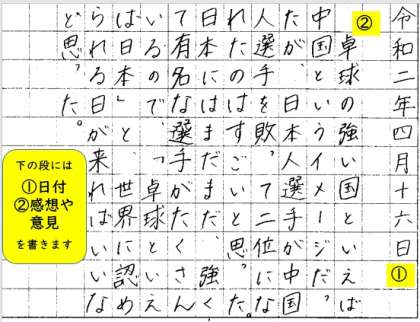 ②
令和二年四月十六日
卓球の強い国といえば
中国というイメージだっ
たが、日本人選手が中国
人選手を敗って二位にな
れたのはすごいと思った。
日本にはまだまだ強く
て有名な選手がたくさん
いるので、「卓球といえ
ば日本」と、世界に認め
られる日が来ればいいな
と思った。
①
下の段には
①日付
②感想や
意見
を書きます